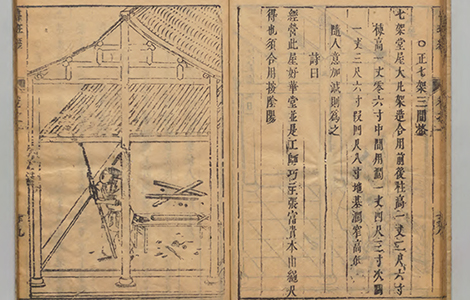 ○正七架三間格
七架堂屋大凡架造合用前後柱高一丈二尺六寸
棟高一丈零六寸中間用濶一丈四尺三寸次濶
一丈三尺六寸段四尺八寸地基濶窄高低
隨人意加減則為之
詩曰
經營此屋好華堂並是工師巧主張富貴本由繩尺
得也須合用按陰陽